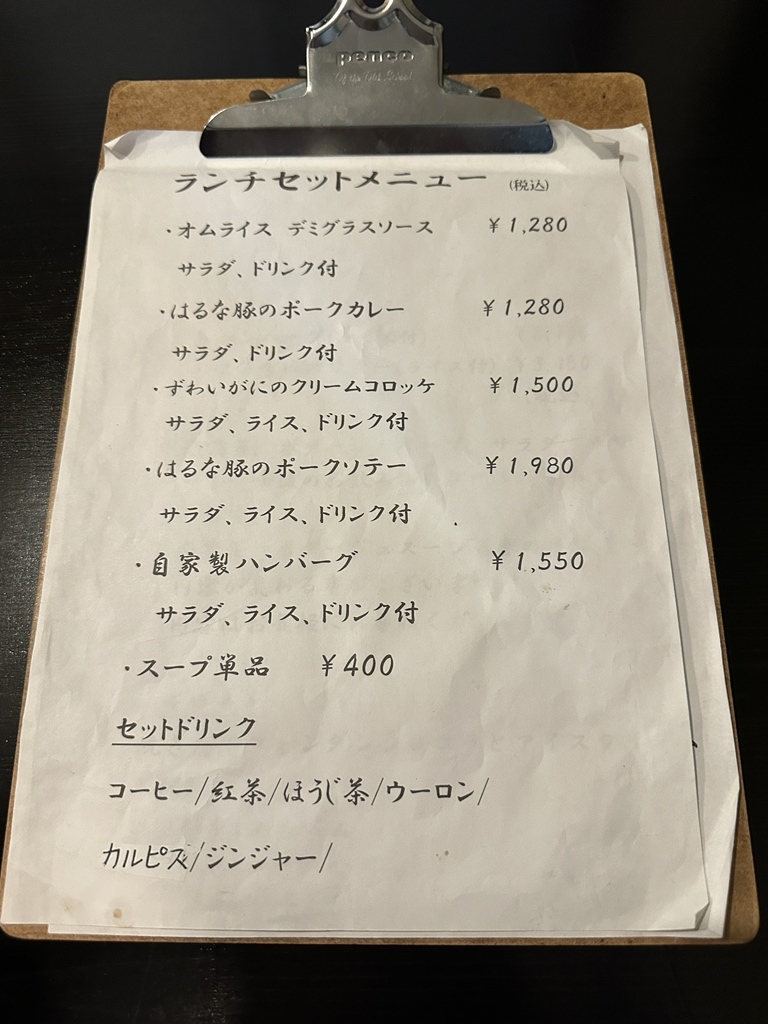 penco
ランチセットメニュー (税込)
・オムライス デミグラスソース ¥1,280
サラダ、ドリンク付
・はるな豚のポークカレー ¥1,280
サラダ、ドリンク付
・ずわいがにのクリームコロッケ ¥1,500
サラダ、ライス、ドリンク付
・はるな豚のポークソテー ¥1,980
サラダ、ライス、ドリンク付
・自家製ハンバーグ ¥1,550
サラダ、ライス、ドリンク付
・スープ単品 ¥400
セットドリンク
コーヒー/紅茶/ほうじ茶/ウーロン/
カルピス/ジンジャー/